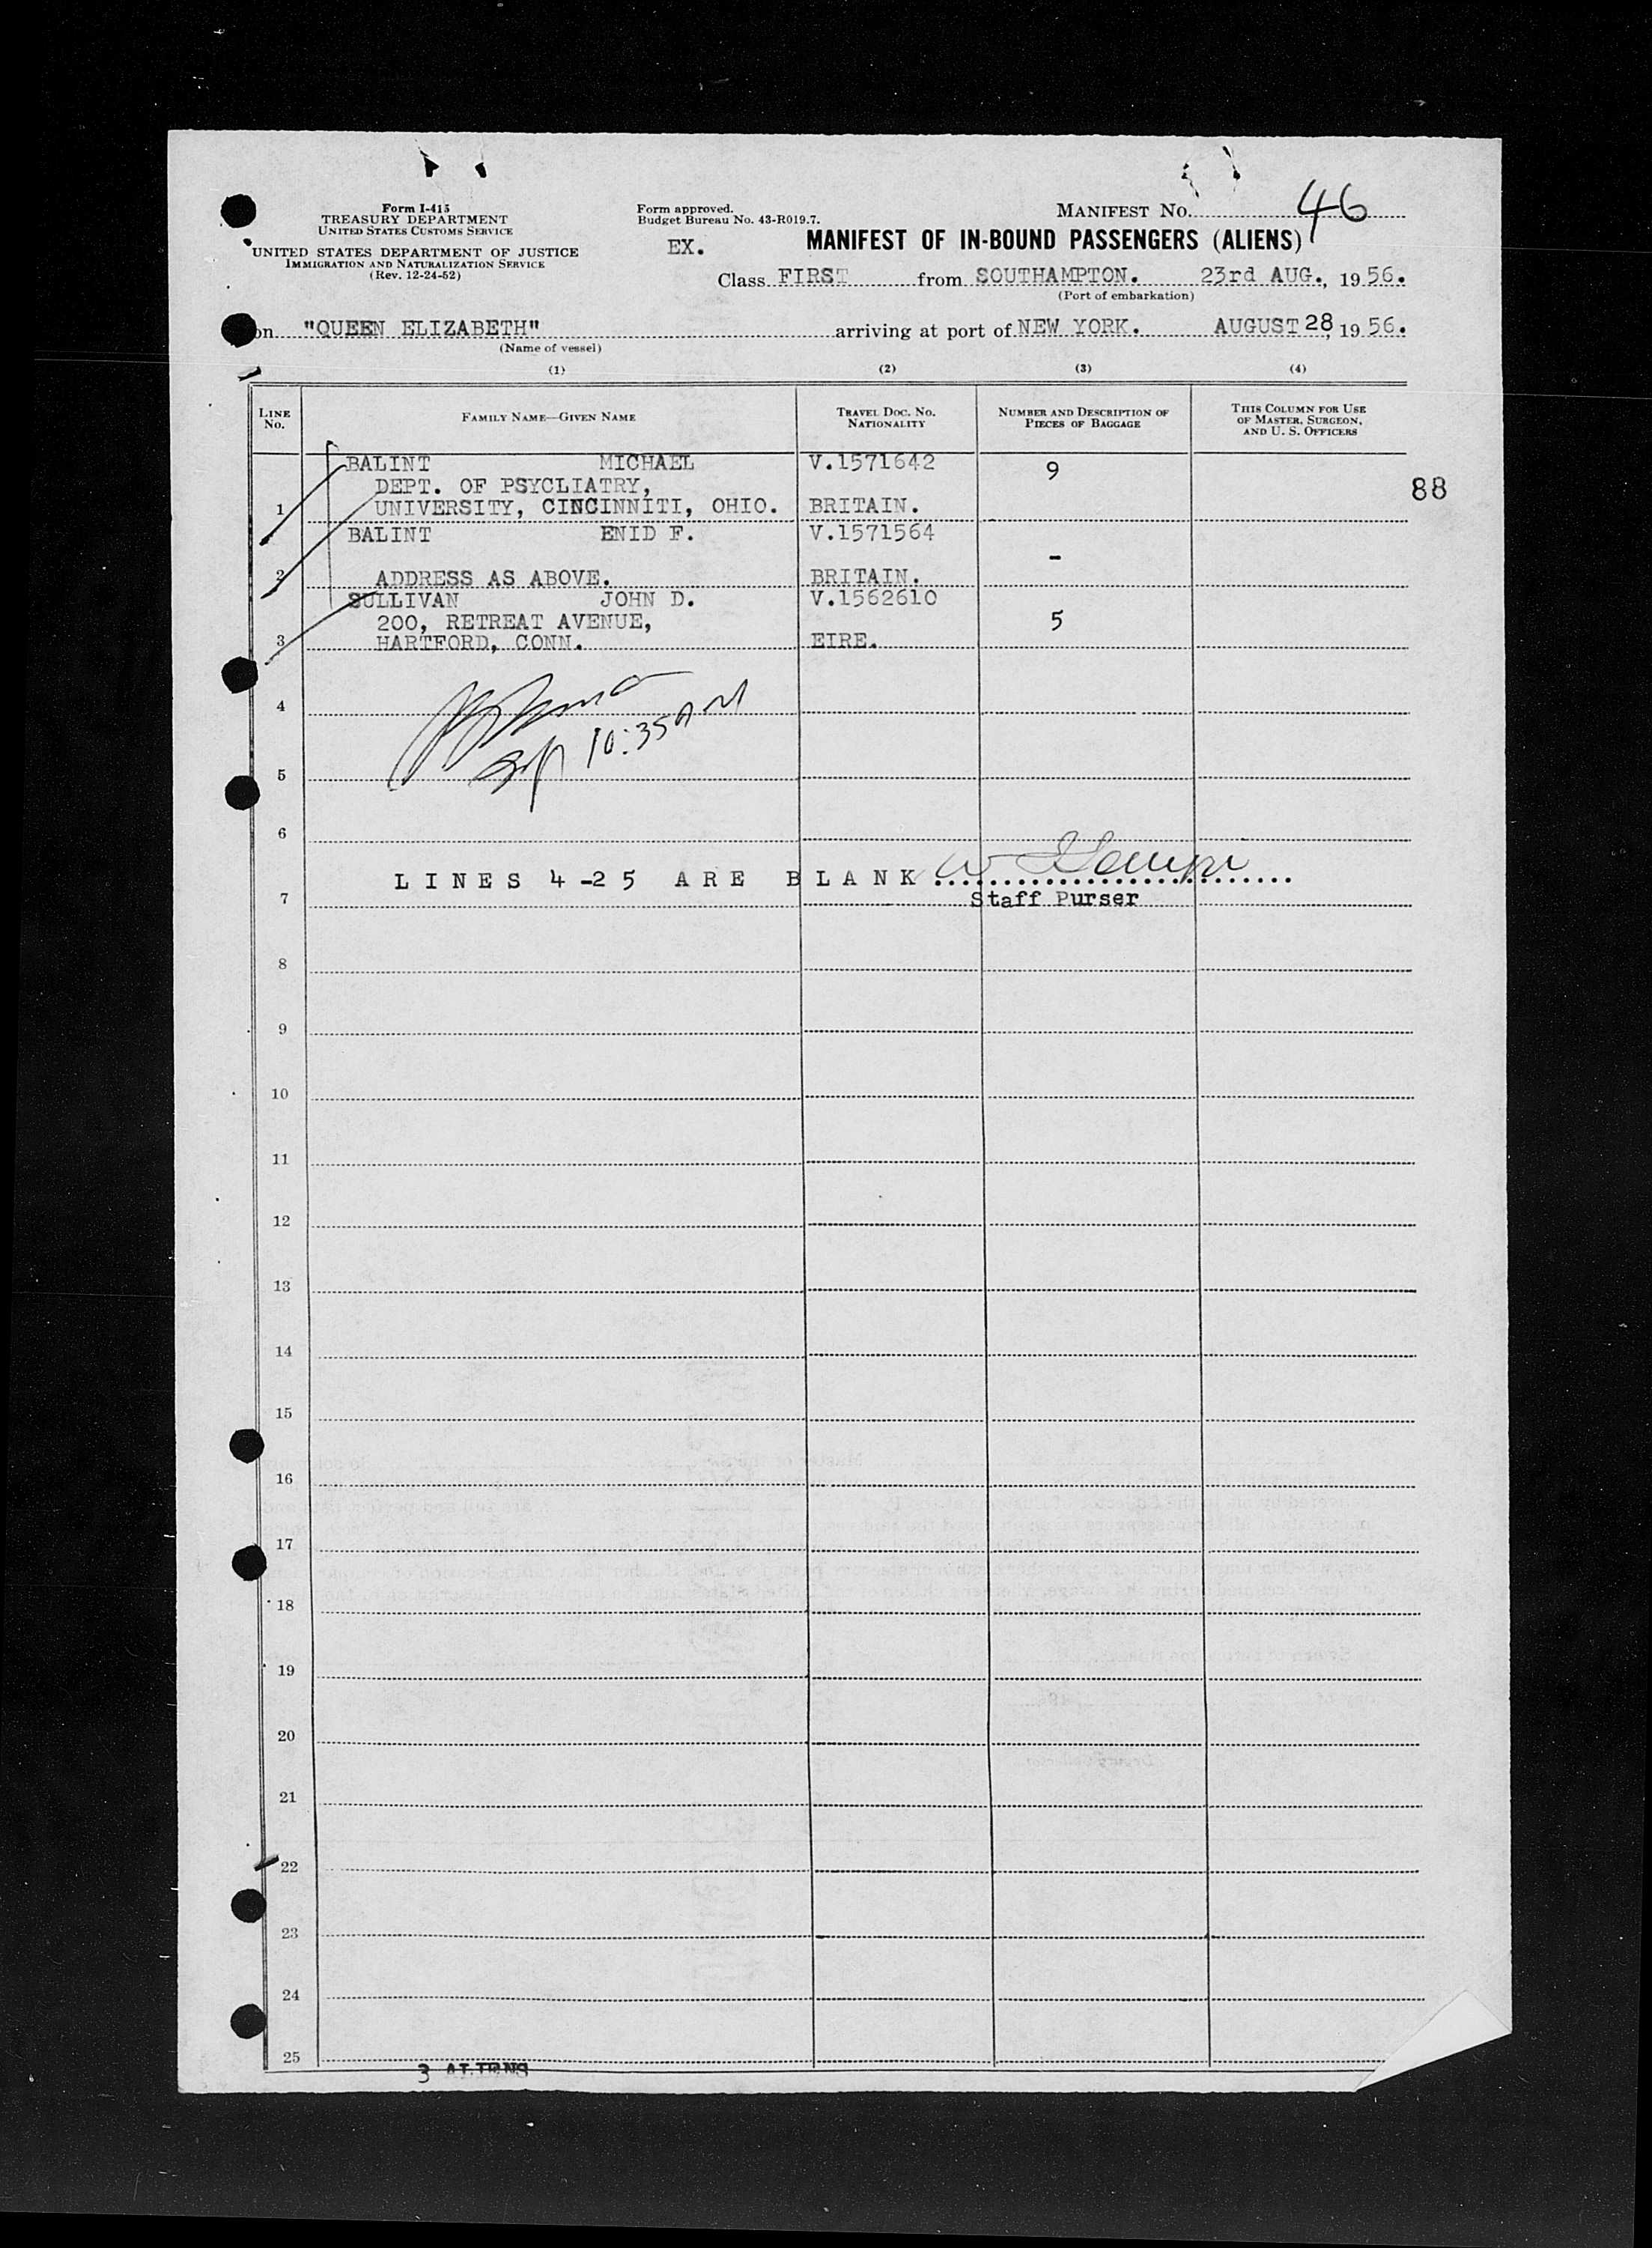 Form I-415
TREASURY DEPARTMENT
UNITED STATES CUSTOMS SERVICE
UNITED STATES DEPARTMENT OF JUSTICE
IMMIGRATION AND NATURALIZATION SERVICE
(Rev. 12-24-52)
Form approved.
Budget Bureau No. 43-R019.7.
EX.
MANIFEST NO. 46
MANIFEST OF IN-BOUND PASSENGERS (ALIENS)
Class FIRST from SOUTHAMPTON. 23rd AUG., 1956.
(Port of embarkation)
on "QUEEN ELIZABETH" arriving at port of NEW YORK. AUGUST 28, 1956.
(Name of vessel)
(1) (2) (3) (4)
LINE NO. FAMILY NAME—GIVEN NAME TRAVEL DOC. NO. NATIONALITY NUMBER AND DESCRIPTION OF PIECES OF BAGGAGE THIS COLUMN FOR USE OF MASTER, SURGEON, AND U. S. OFFICERS
BALINT MICHAEL V.1571642 9
DEPT. OF PSYCLIATRY,
88
1 UNIVERSITY, CINCINNITI, OHIO. BRITAIN.
BALINT ENID F. V.1571564
-
2 ADDRESS AS ABOVE. BRITAIN.
SULLIVAN JOHN D. V.1562610
200, RETREAT AVENUE, 5
3 HARTFORD, CONN. EIRE.
4
10:35 AM
5
6
LINES 4-25 ARE BLANK
7 Staff Purser
8
9
10
11
12
13
14
15
16
17
18
19
20
21
22
23
24
25
3 ALIENS